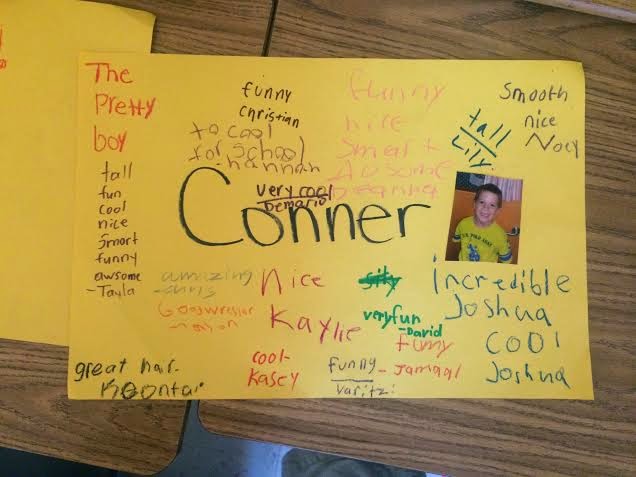 The
Pretty
boy
tall
fun
cool
nice
Smart
funny
awsome
-Tayla
funny
christian
to cool
for School
hannah
very cool
Demario
funny
nice
Smart
Awsome
Deanna
tall
Lily
Smooth
nice
Noey
Conner
amazing
-chris
Nice
Kaylie
silly
very fun
-David
Incredible
Joshua
cool
Joshua
funny
-Jamaal
great hair-
Koontar
cool-
Kasey
funny
Yaritzi